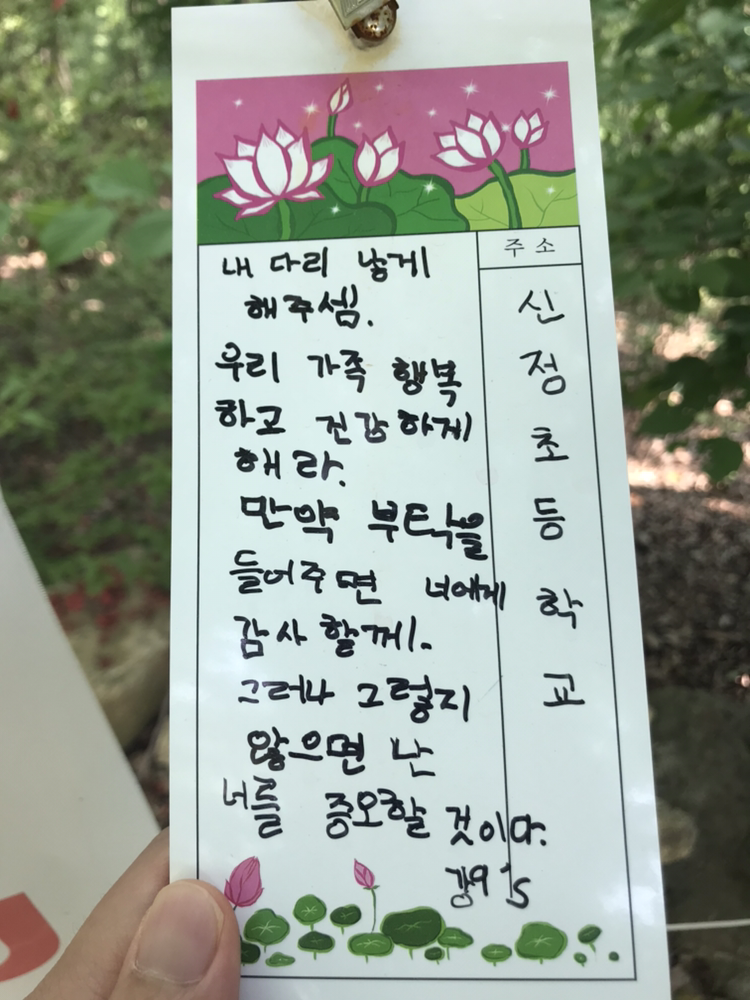 내 다리 낳게
해주셈.
우리 가족 행복
하고 건강하게
해라.
만약 부탁을
들어주면 너에게
감사할께.
그러나 그렇지
않으면 난
너를 증오할 것이다.
주소
신
정
초
등
학
교